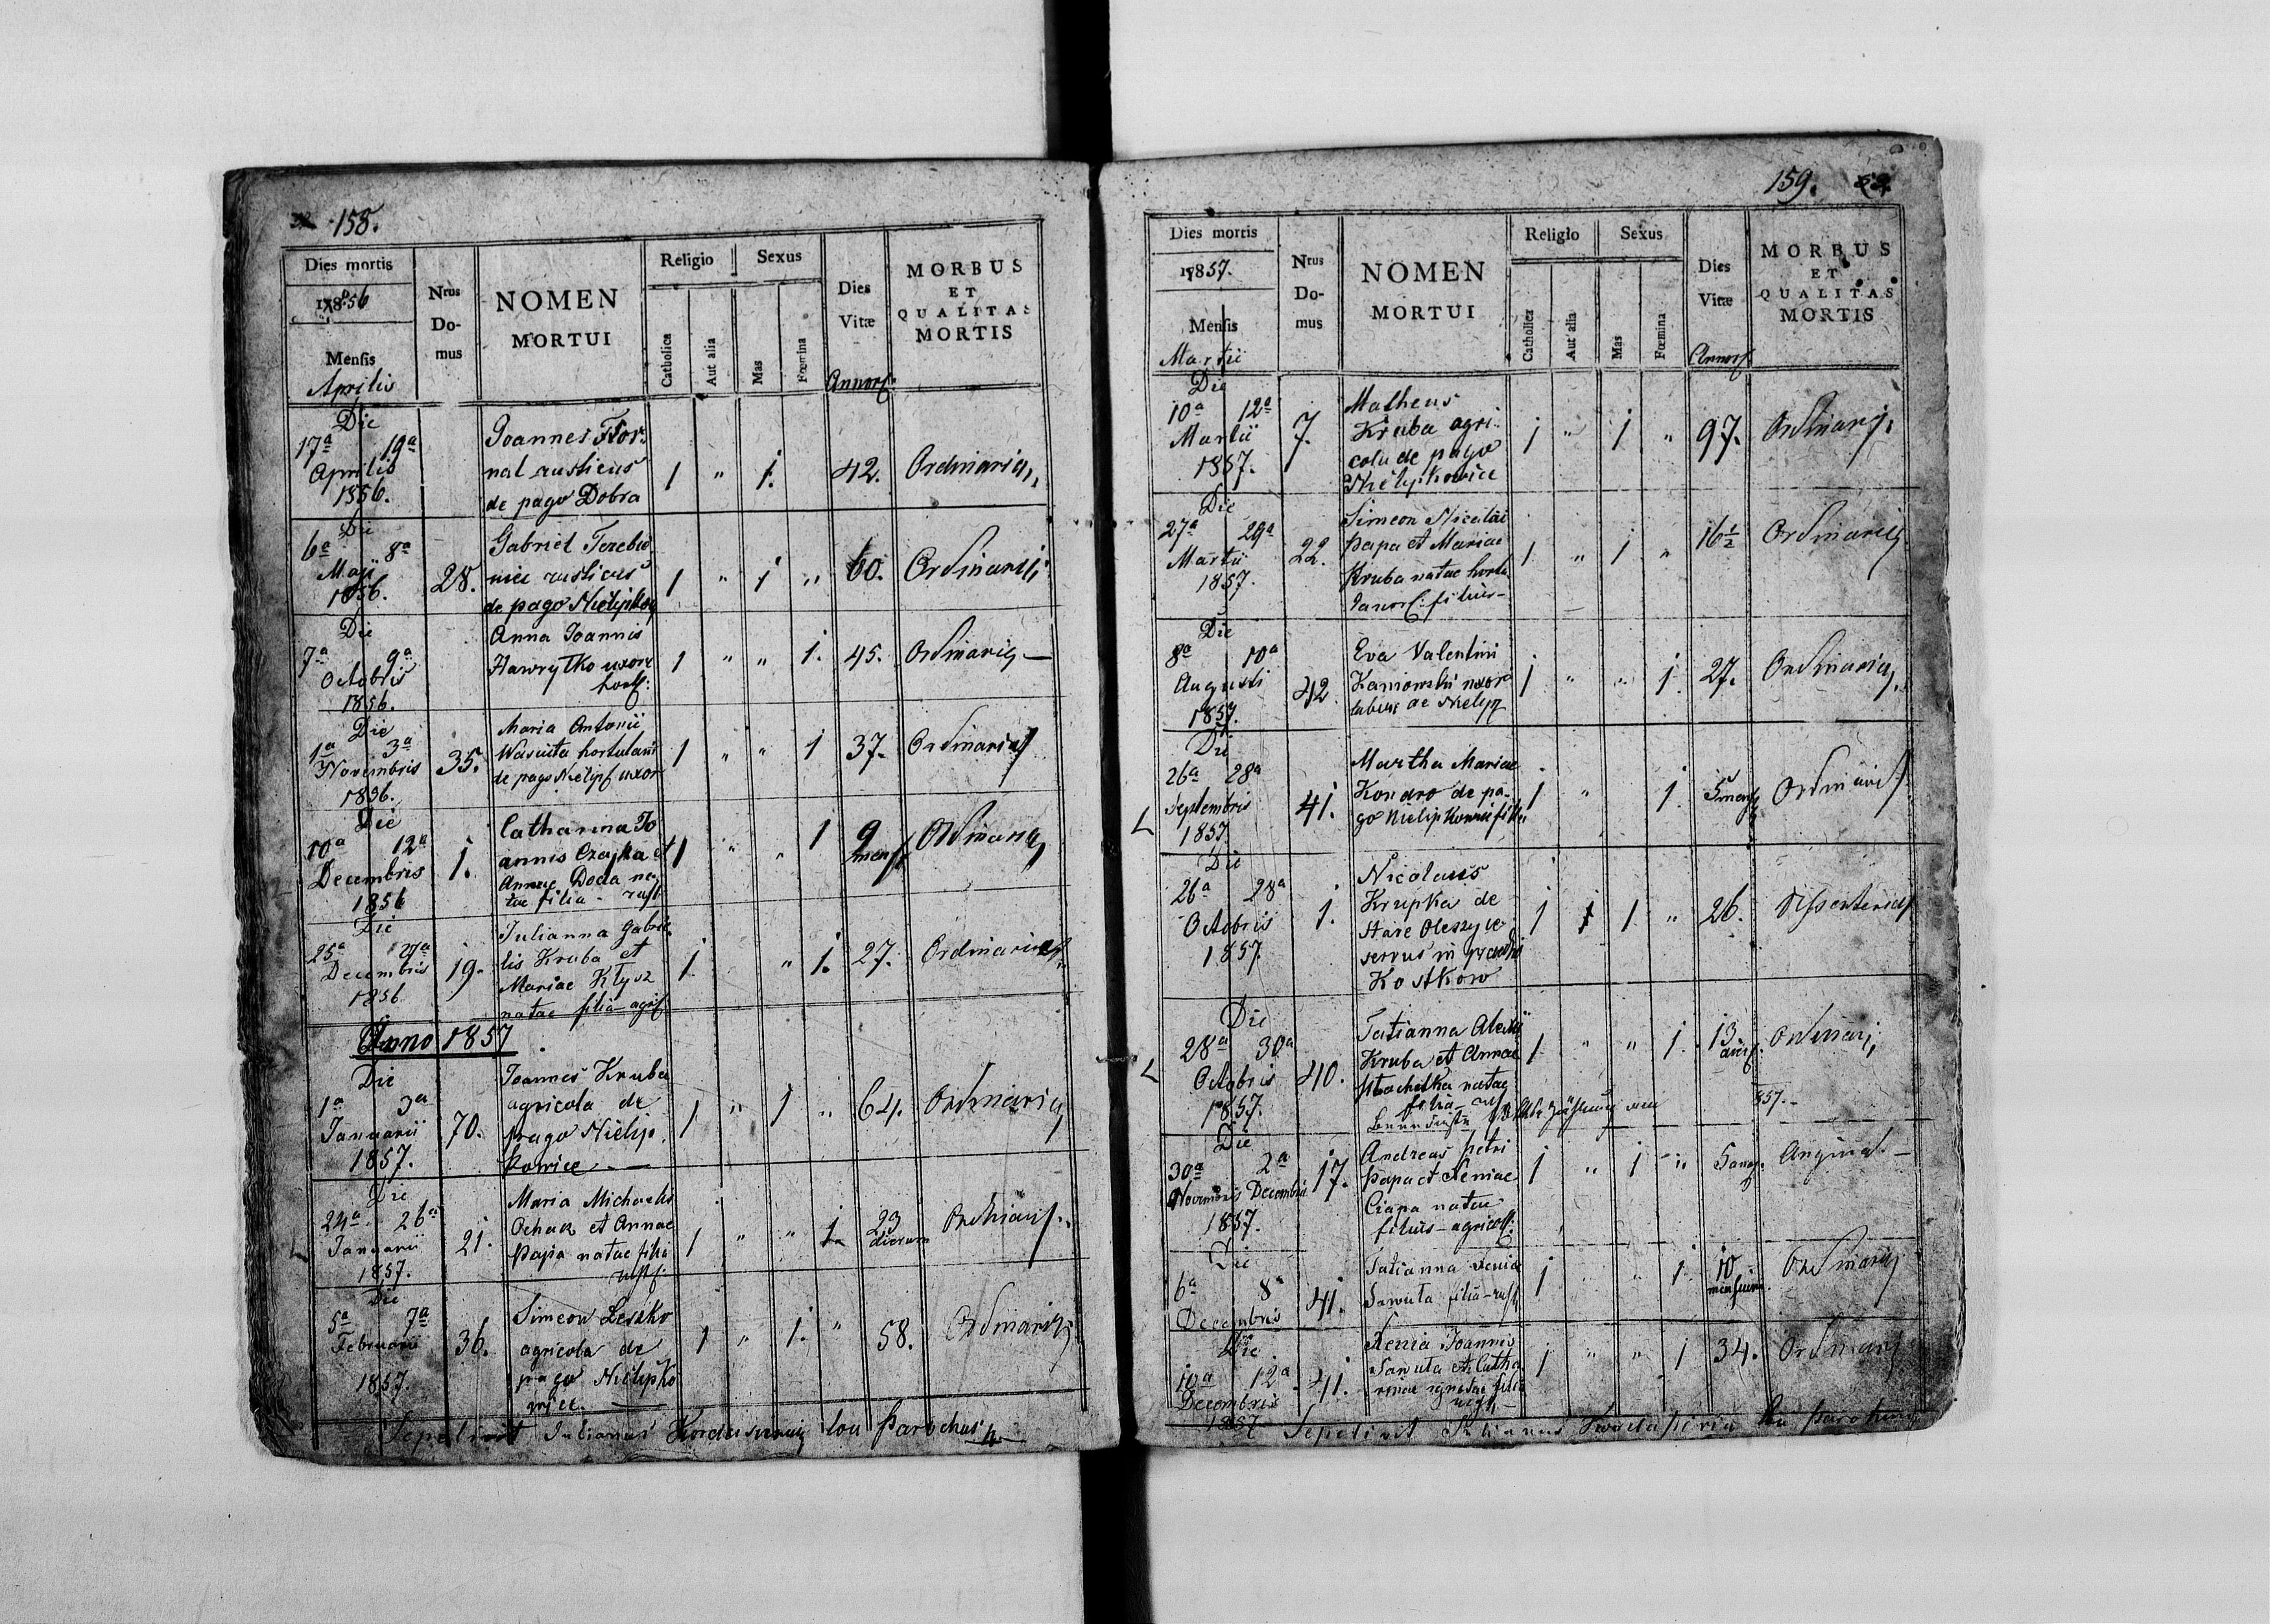 158.
Dies mortis
1856
Mensis
Aprilis
Nrus
Do-
mus
NOMEN
MORTUI
Religio
Catholica
Aut alia
Sexus
Mas
Fœmina
Dies
Vitæ
Annor.
MORBUS
ET
QUALITAS
MORTIS
Die
17a 19a
Aprilis
1856.
Joannes
nal rusticus
de pago Dobra
1 " 1. 42. Ordinaria
Die
6a 8a
Maji
1856.
28.
Gabriel Terebu
nice rusticus
de pago Nielipkow
1 " 1 " 60. Ordinaria
Die
7a 9a
Octobris
1856.
Anna Joannis
Hawrytko uxor
hort:
1 " " 1. 45. Ordinaria
Die
1a 3a
Novembris
1856.
35.
Maria Antonii
Wasiuta hortulani
de pago Nielipk uxor
1 " " 1 37. Ordinaria
Die
10a 12a
Decembris
1856
1.
Catharina Jo
annis Czajka et
Annae Doda na
tae filia - rust
1 " " 1 9 mens Ordinaria
Die
25a 27a
Decembris
1856
19.
Julianna Gabrie
lis Kruba et
Mariae Kłysz
natae filia - agric
1. " 1. 27. Ordinaria
Anno 1857.
Die
1a 3a
Januarii
1857.
70.
Joannes Kruba
agricola de
pago Nielip
kowice
1 " 1 " 64. Ordinaria
Die
24a 26a
Januarii
1857.
21.
Maria Michaelis
Ochak et Annae
Papa natae filia
rust:
1 " " 1 23 dierum
Die
5a 7a
Februarii
1857.
36.
Simeon Leszko
agricola de
pago Nielipko
wice.
1 " 1. " 58. Ordinaria
Sepelivit Julianus parochus
159.
Dies mortis
1857.
Mensis
Martii
Nrus
Do-
mus
NOMEN
MORTUI
Religio
Catholica
Aut alia
Sexus
Mas
Fœmina
Dies
Vitæ
Annor.
MORBUS
ET
QUALITAS
MORTIS
Die
10a 12a
Martii
1857.
7.
Matheus
Kruba agri-
cola de pago
Nielipkowice
1 " 1 " 97. Ordinaria
Die
27a 29a
Martii
1857.
22.
Simeon Nicolai
Papa et Mariae
Kruba natae hortu
lanor: filius -
1 " 1 " 16½ Ordinaria
Die
8a 10a
Augusti
1857.
42
Eva Valentini
Kaniowski uxor
de Nielip
1 " " 1. 27. Ordinaria
Die
26a 28a
Septembris
1857.
41.
Martha Mariae
Kondro de pa-
go Nielipkowice filia
1 " 1. 5 mens Ordinaria
Die
26a 28a
Octobris
1857.
1.
Nicolaus
Krupka de
Stare Oleszyce
servus in praedio
Kostkow
1 1 1 " 26. Dissenteria
Die
28a 30a
Octobris
1857.
40.
Tatianna Alexii
Kruba et Annae
natae
filia - rust
1 " " 1. 13 Ordinari
857.-
Die
30a 2a
Novembris Decembris
1857.
17.
Andreas Petri
Papa et Xeniae
Ciapa natae
filius - agricol:
1 " 1 " 5 Angina. -
Die
6a 8a
Decembris
41.
Tatianna Xenia
Sawuta filia - rust
1 " 1. 10 mensium Ordinaria
Die
10a 12a
Decembris
1857
41.
Xenia Joannis
Sawuta et Catha
rinae natae filia
1 " " 1 34. Ordinaria
Sepelivit Julianus parochus